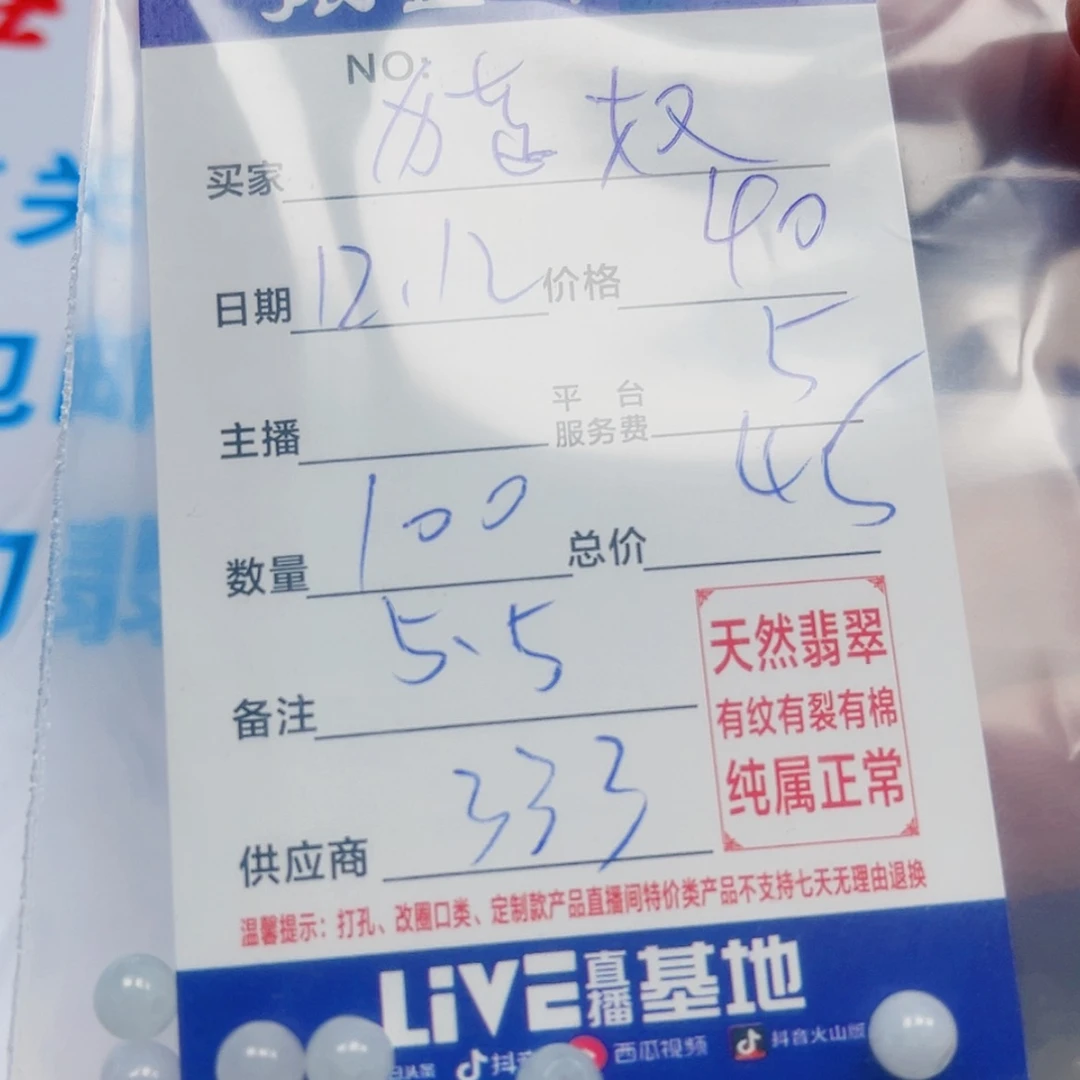 NO:
买家
40
日期 12.12 价格
5
主播 平台服务费
45
数量 100 总价
5.5
备注
天然翡翠
有纹有裂有棉
纯属正常
供应商 333
温馨提示：打孔、改圈口类、定制款产品直播间特价类产品不支持七天无理由退换
LiVE直播基地
抖音 西瓜视频 抖音火山版